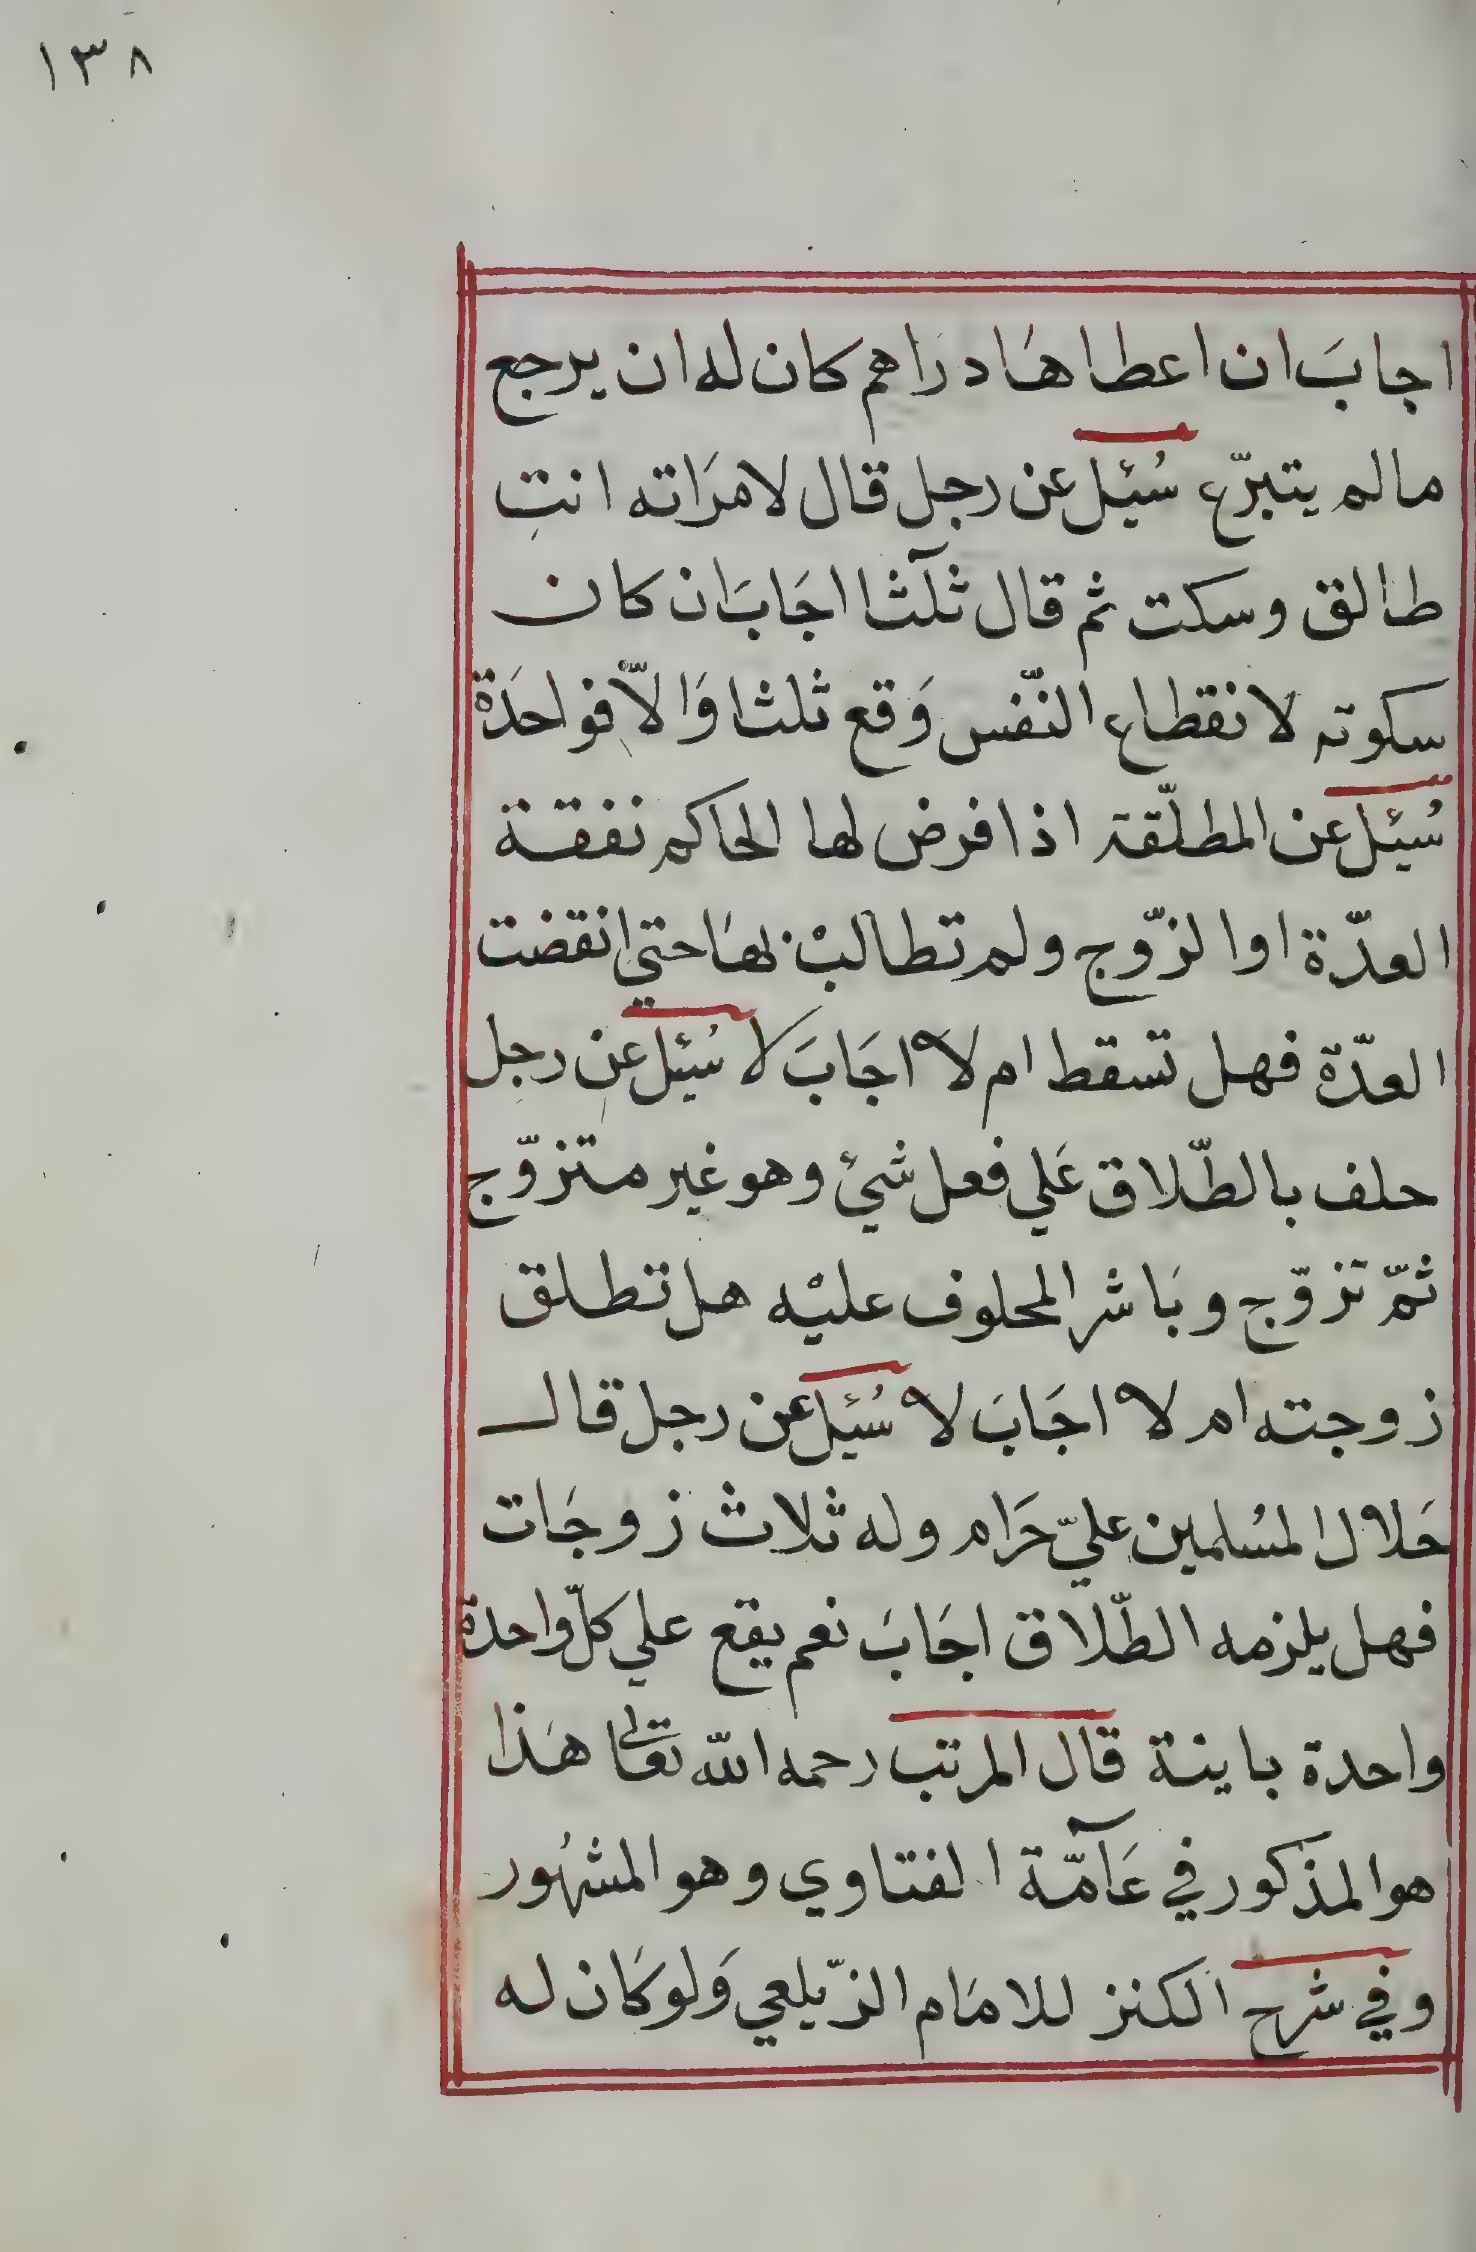 ١٣٨
اجابَ ان اعطاهَا دراهم كان له ان يرجع
مالم يتبرّع سُئيل عن رجل قال لامرَاته انتِ
طالق وسكت ثم قال ثلٓثا اجَابَ ان كان
سكوته لانقطاع النّفس وَقع ثلثا وَالاّ فواحدَة
سُئيل عن المطلّقة اذا فرض لها الحاكم نفقة
العدّة او الزّوج ولم تطالبْ بهَا حتي انقضت
العدّة فهل تسقط ام لا اجَابَ لا سُئيل عن رجل
حلف بالطّلاق عَلي فعل شيئ وهو غير متزوّج
ثمّ تزوّج وبَاشر المحلوف عليْه هل تطلق
زوجته ام لا اجَابَ لا سُئيل عن رجل قال
حَلال المسُلمين عليّ حَرَام وله ثلاث زوجَات
فهل يلزمه الطّلاق اجَابَ نعم يقع علي كلّ واحدة
واحدة باينة قال المرتب رحمه الله تعَالى هَذا
هو المذكور في عَآمّة الفتاوي وهو المشهُور
وفي شرح الكنز للامَام الزّيلعي وَلو كَان له